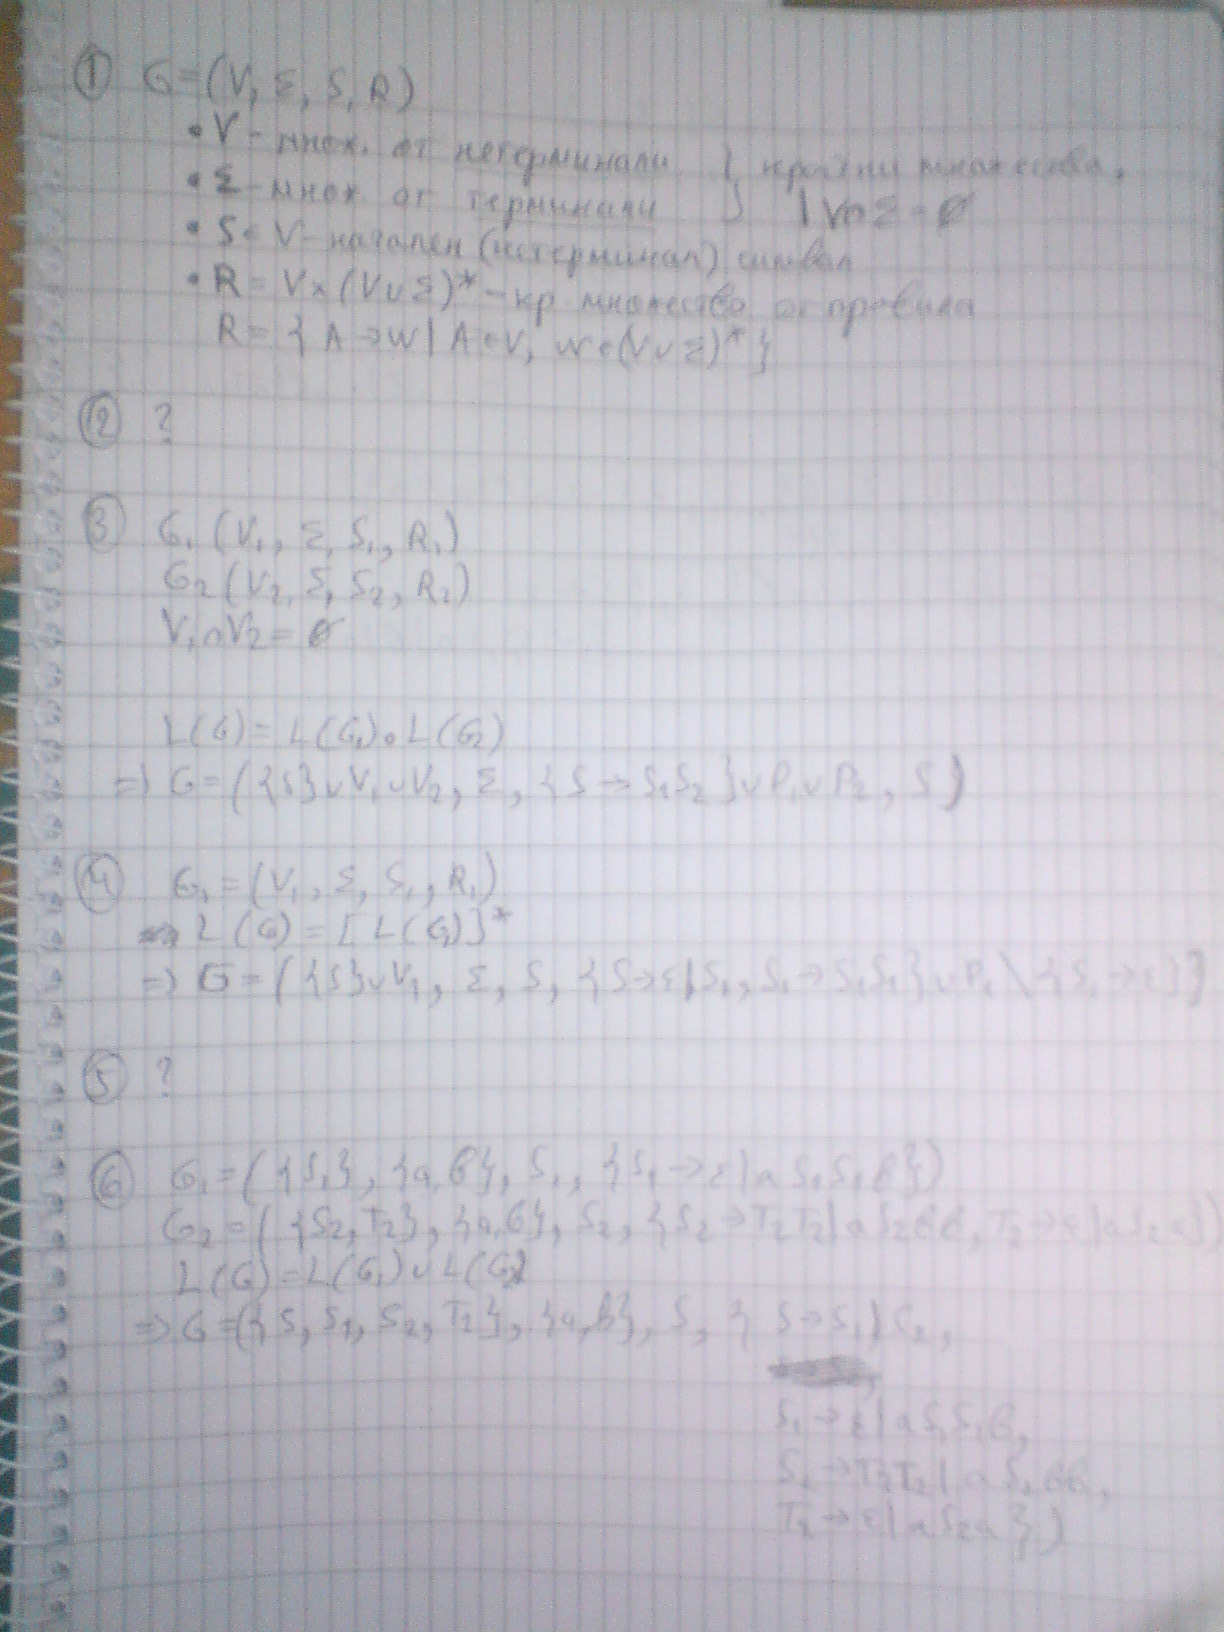 ① G = (V, Σ, S, R)
• V - множ. от нетерминали } крайни множества,
• Σ - множ от терминали | V∩Σ = ∅
• S ∈ V - начален (нетерминал) символ
• R = V × (V∪Σ)* - кр. множество от правила
R = { A → W | A ∈ V, W ∈ (V∪Σ)* }
② ?
③ G₁ (V₁, Σ, S₁, R₁)
G₂ (V₂, Σ, S₂, R₂)
V₁∩V₂ = ∅
L(G) = L(G₁)∘L(G₂)
=> G = ({S}∪V₁∪V₂, Σ, {S → S₁S₂}∪P₁∪P₂, S)
④ G₁ = (V₁, Σ, S₁, R₁)
L(G) = [L(G₁)]*
=> G = ({S}∪V₁, Σ, S, {S→ε|S₁, S₁→S₁S₁}∪P₁ \ {S₁→ε}}
⑤ ?
⑥ G₁ = ({S₁}, {a,b}, S₁, {S₁→ε|aS₁S₁b})
G₂ = ({S₂,T₂}, {a,b}, S₂, {S₂→T₂T₂|aS₂bb, T₂→ε|aS₂a})
L(G) = L(G₁)∪L(G₂)
=> G = ({S, S₁, S₂, T₂}, {a,b}, S, { S→S₁|S₂,
S₁→ε|aS₁S₁b,
S₂→T₂T₂|aS₂bb,
T₂→ε|aS₂a})